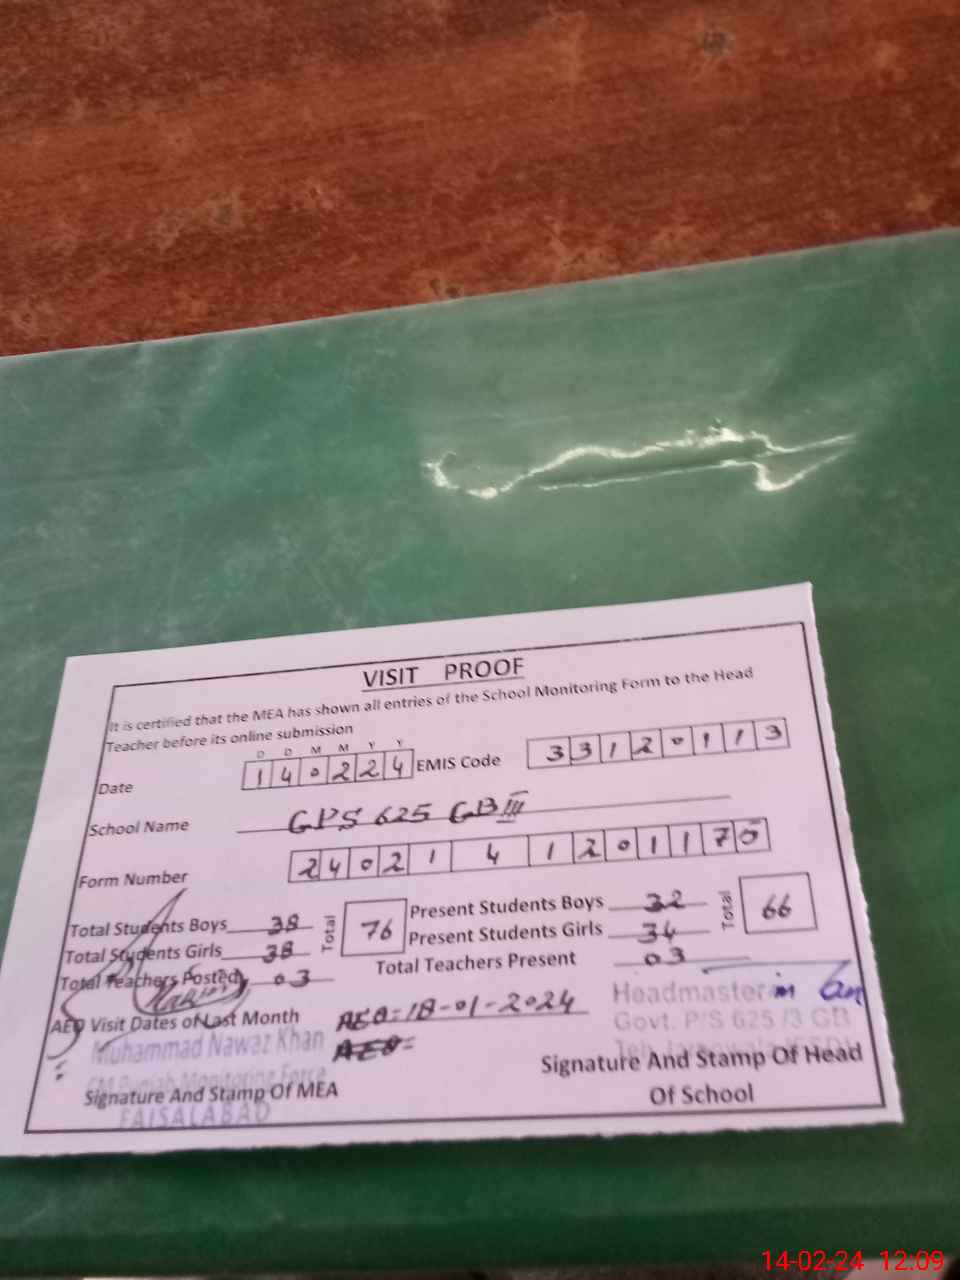 VISIT PROOF
It is certified that the MEA has shown all entries of the School Monitoring Form to the Head
Teacher before its online submission
D D M M Y Y
Date 140224 EMIS Code 33120113
School Name GPS 625 GB III
Form Number 2402141201170
Total Students Boys 38 Total 76 Present Students Boys 32 Total 66
Total Students Girls 38 Present Students Girls 34
Total Teachers Posted 03 Total Teachers Present 03
AEO Visit Dates of Last Month AEO=18-01-2024
AEO=
Headmaster
Govt. P/S 625/3 GB
Muhammad Nawaz Khan
CM Punjab Monitoring Force
FAISALABAD
Signature And Stamp Of MEA
Signature And Stamp Of Head
Of School
14-02-24 12:09